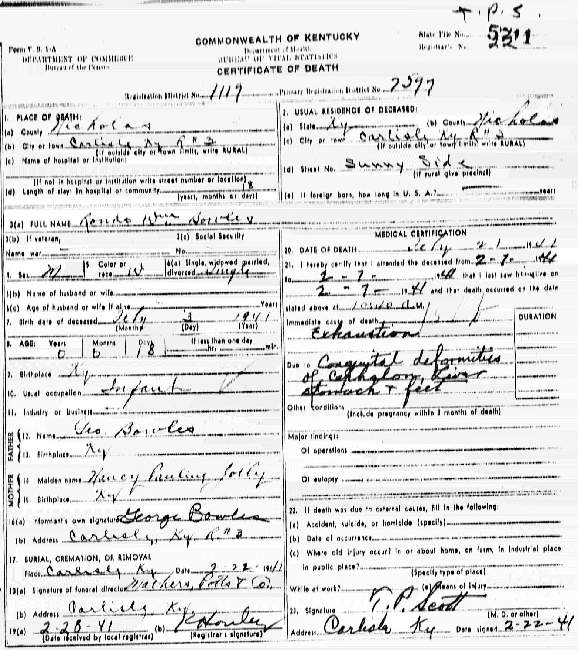 T. P. S.
COMMONWEALTH OF KENTUCKY
State File No.
Form V. S. 1-A
DEPARTMENT OF COMMERCE
Bureau of the Census
Department of Health
BUREAU OF VITAL STATISTICS
CERTIFICATE OF DEATH
Registrar's No. 221
Registration District No. 1119
Primary Registration District No. 7397
1. PLACE OF DEATH:
(a) County Nicholas
(b) City or town Carlisle Ky R # 3
(If outside city or town limits, write RURAL)
(c) Name of hospital or institution:
(If not in hospital or institution write street number or location)
(d) Length of stay: In hospital or community 18
(years, months or days)
2. USUAL RESIDENCE OF DECEASED:
(a) State Ky (b) County Nicholas
(c) City or town Carlisle Ky R # 3
(If outside city or town limits, write RURAL)
(d) Street No. Sunny Side
(If rural give precinct)
(e) If foreign born, how long in U. S. A.? years
3(a) FULL NAME Wm Bowles
3(b) If veteran,
Name war
3(c) Social Security
No.
4. Sex M
5. Color or race W
6(a) Single, widowed, married, divorced Single
6(b) Name of husband or wife
6(c) Age of husband or wife if alive Years
7. Birth date of deceased Feby 3 1941
(Month) (Day) (Year)
8. AGE: Years Months Days If less than one day
0 0 18 hr. min.
9. Birthplace Ky
10. Usual occupation Infant
11. Industry or business
FATHER
12. Name Geo. Bowles
13. Birthplace Ky
MOTHER
14. Maiden name Nancy Pauline
15. Birthplace Ky
16(a) Informant's own signature George Bowles
(b) Address Carlisle, Ky. R # 3
17. BURIAL, CREMATION, OR REMOVAL
Place Carlisle Ky 2-22-1941
18(a) Signature of funeral director Mathers, Potts & Co.
(b) Address Carlisle Ky.
19(a) 2-28-41 (b)
(Date received by local registrar) (Registrar's signature)
MEDICAL CERTIFICATION
20. DATE OF DEATH Feby 21 1941
21. I hereby certify that I attended the deceased from 2-7- 1941
to 2-7- 1941 that I last saw him alive on
2-7- 1941 and that death occurred on the date
stated above at M.
DURATION
Immediate cause of death
Exhaustion
Due to Congenital deformities
of
stomach & feet
Other conditions
(Include pregnancy within 3 months of death)
Major findings:
Of operations
Of autopsy
22. If death was due to external causes, fill in the following:
(a) Accident, suicide, or homicide (specify)
(b) Date of occurrence
(c) Where did injury occur in or about home, on farm, in industrial place
in public place?
(Specify type of place)
While at work? (e) Means of injury
23. Signature T. P. Scott
(M. D. or other)
Address Carlisle Ky Date signed 2-22-41